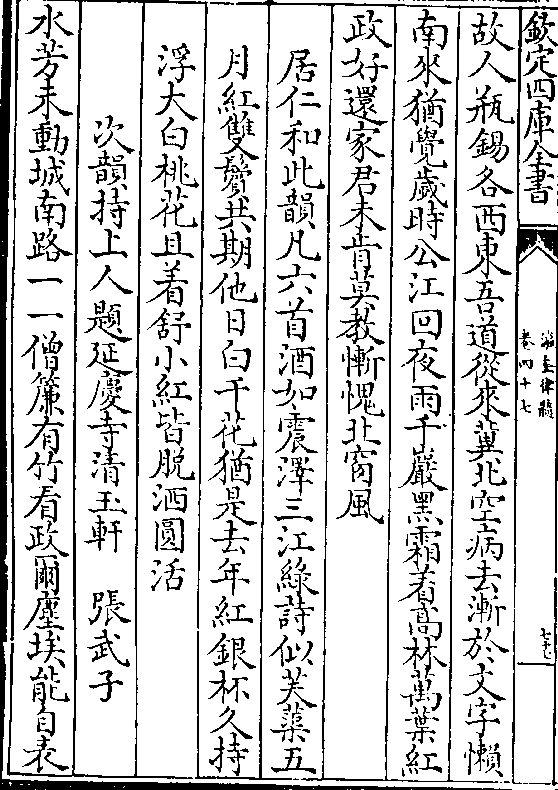 欽定四庫全書
瀛奎律髓
卷四十七
故人瓶錫各西東吾道從來冀北空病去漸於文字懶
南來猶覺歲時公江回夜雨千巖黑霜着髙林萬葉紅
政好還家君未肯莫教慚愧北窗風
居仁和此韻凡六首酒如震澤三江綠詩似芙蕖五
月紅雙鬢共期他日白千花猶是去年紅銀杯久持
浮大白桃花且着舒小紅皆脫洒圓活
次韻持上人題延慶寺清玉軒 張武子
水芳未動城南路一一僧簾有竹看政爾塵埃能自表